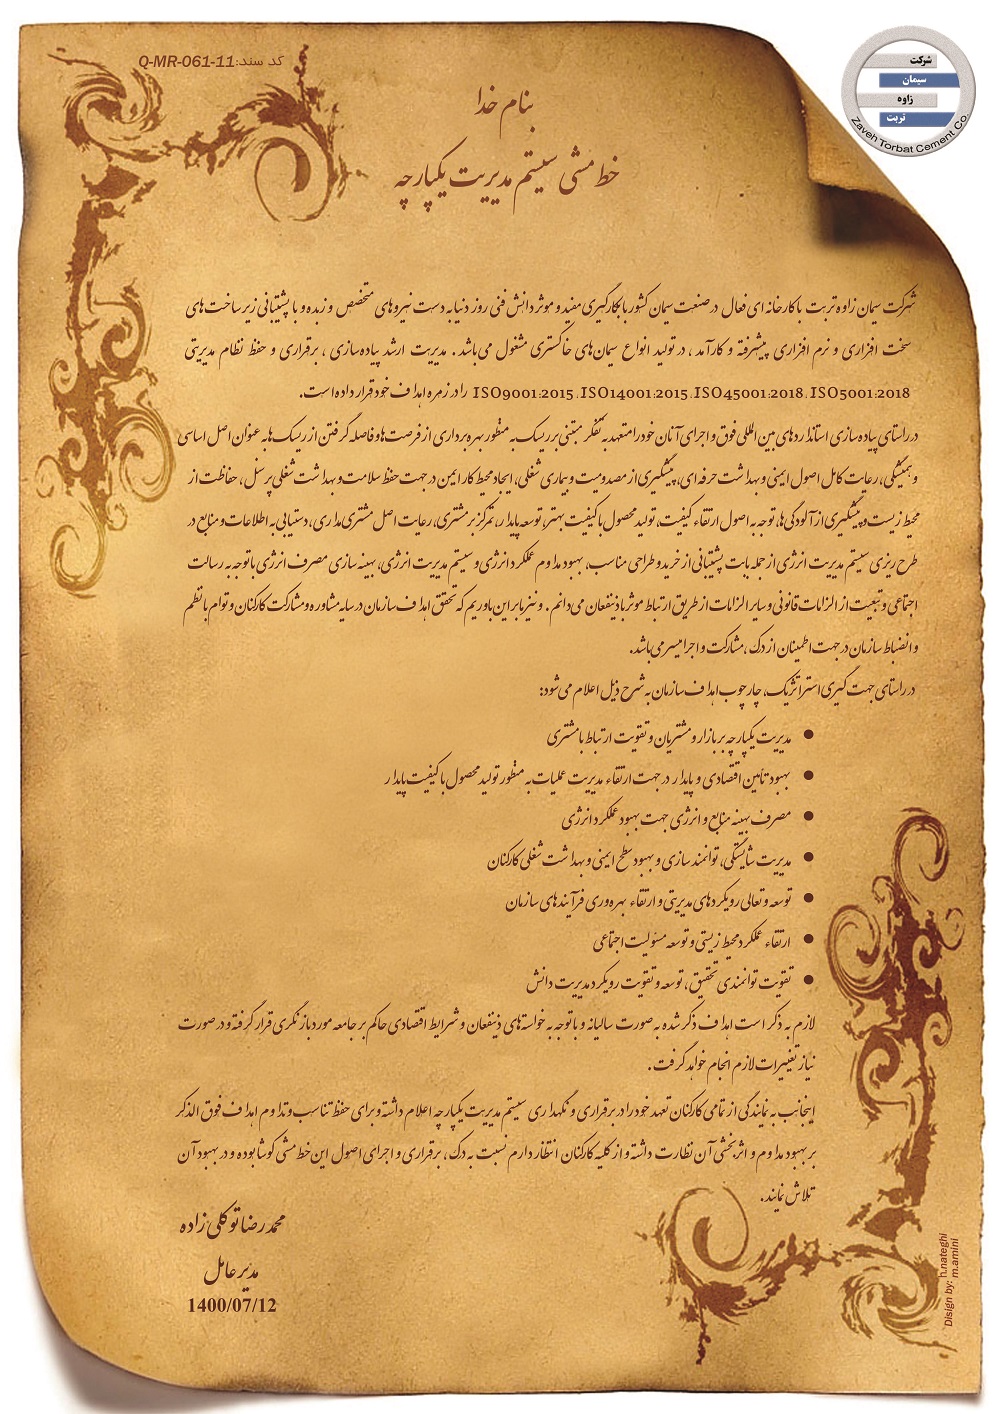 کد سند:Q-MR-061-11
شرکت
سیمان
زاوه
تربت
Zaveh Torbat Cement Co.
بنام خدا
خط مشی سیستم مدیریت یکپارچه
شرکت سیمان زاوه تربت با کارخانه ای فعال در صنعت سیمان کشور با بکارگیری مفید و موثر دانش فنی روز دنیا به دست نیروهای متخصص و زبده و با پشتیبانی زیرساخت های
سخت افزاری و نرم افزاری پیشرفته و کارآمد ، در تولید انواع سیمان های خاکستری مشغول می باشد . مدیریت ارشد پیاده سازی ، برقراری و حفظ نظام مدیریتی
ISO9001:2015 , ISO14001:2015 , ISO45001:2018 , ISO5001:2018 را در زمره اهداف خود قرار داده است.
در راستای پیاده سازی استانداردهای بین المللی فوق و اجرای آنان خود را متعهد به تفکر مبتنی بر ریسک به منظور بهره برداری از فرصت ها و فاصله گرفتن از ریسک ها به عنوان اصل اساسی
و همیشگی، رعایت کامل اصول ایمنی و بهداشت حرفه ای، پیشگیری از مصدومیت و بیماری شغلی، ایجاد محیط کار ایمن در جهت حفظ سلامت و بهداشت شغلی پرسنل، حفاظت از
محیط زیست و پیشگیری از آلودگی ها، توجه به اصول ارتقاء کیفیت، تولید محصول با کیفیت بهتر، توسعه پایدار، تمرکز بر مشتری، رعایت اصل مشتری مداری، دستیابی به اطلاعات و منابع در
طرح ریزی سیستم مدیریت انرژی از جمله بات پشتیبانی از خرید و طراحی مناسب، بهبود مداوم عملکرد انرژی و سیستم مدیریت انرژی، بهینه سازی مصرف انرژی با توجه به رسالت
اجتماعی و تبعیت از الزامات قانونی و سایر الزامات از طریق ارتباط موثر با ذینفعان می دانم . و نیز بر این باوریم که تحقق اهداف سازمان در سایه مشاوره و مشارکت کارکنان و توام با نظم
و انضباط سازمان در جهت اطمینان از درک ، مشارکت و اجرا میسر می باشد.
در راستای جهت گیری استراتژیک، چارچوب اهداف سازمان به شرح ذیل اعلام می شود:
● مدیریت یکپارچه بر بازار و مشتریان و تقویت ارتباط با مشتری
● بهبود تامین اقتصادی و پایدار در جهت ارتقاء مدیریت عملیات به منظور تولید محصول با کیفیت پایدار
● مصرف بهینه منابع و انرژی جهت بهبود عملکرد انرژی
● مدیریت شایستگی، توانمندسازی و بهبود سطح ایمنی و بهداشت شغلی کارکنان
● توسعه و تعالی رویکردهای مدیریتی و ارتقاء بهره وری فرآیندهای سازمان
● ارتقاء عملکرد محیط زیستی و توسعه مسئولیت اجتماعی
● تقویت توانمندی تحقیق، توسعه و تقویت رویکرد مدیریت دانش
لازم به ذکر است اهداف ذکر شده به صورت سالیانه و با توجه به خواسته های ذینفعان و شرایط اقتصادی حاکم بر جامعه مورد بازنگری قرار گرفته و در صورت
نیاز تغییرات لازم انجام خواهد گرفت .
اینجانب به نمایندگی از تمامی کارکنان تعهد خود را در برقراری و نگهداری سیستم مدیریت یکپارچه اعلام داشته و برای حفظ تناسب و تداوم اهداف فوق الذکر
بر بهبود مداوم و اثربخشی آن نظارت داشته و از کلیه کارکنان انتظار دارم نسبت به درک، برقراری و اجرای اصول این خط مشی کوشا بوده و در بهبود آن
تلاش نمایند.
محمدرضا توکلی زاده
مدیرعامل
1400/07/12
Disign by: h.nateghi
m.amini